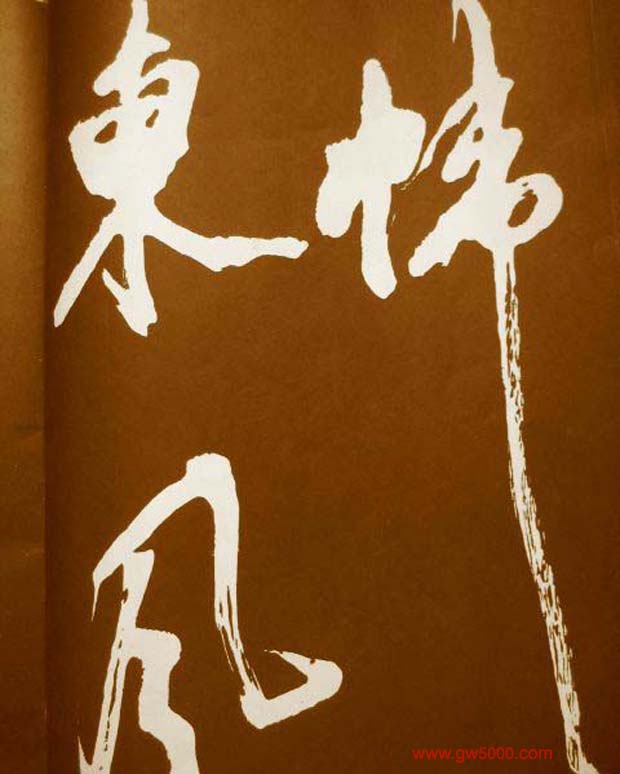 東
風
www.gw5000.com